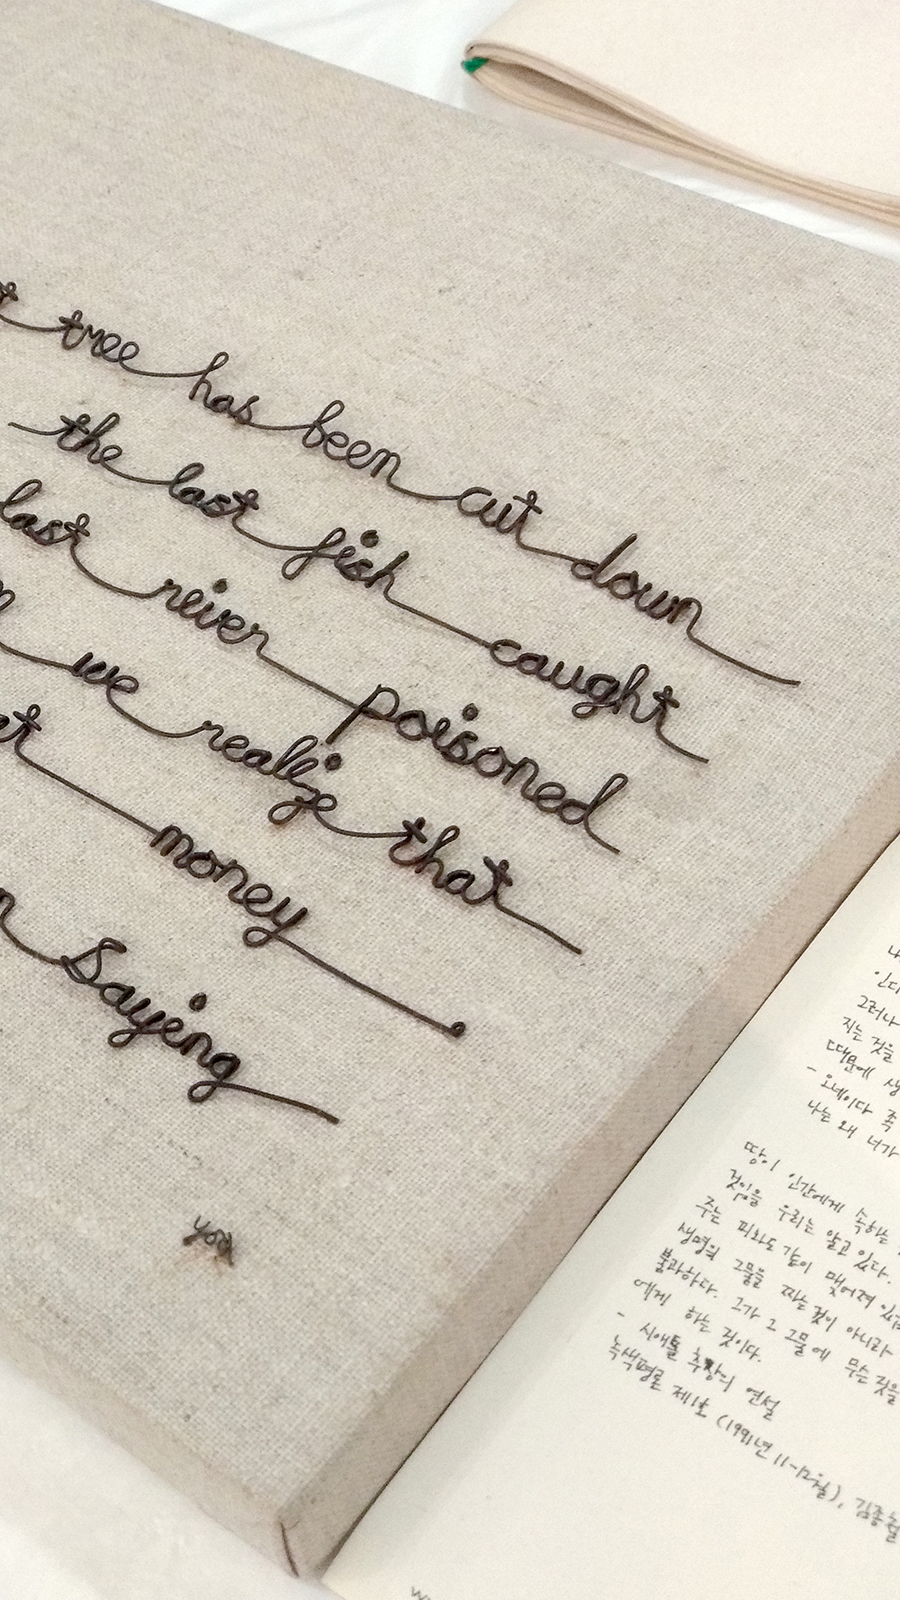 tree has been cut down
the last fish caught
last reiver poisoned
we realize that
money
Sayeng
you
인디
그러나
지는 것을
때문에 생
- 오네이다 족
나는 왜 너가
땅이 인간에게 속하는
것임을 우리는 알고 있다.
주는 피와도 같이 맺어져 있
생명의 그물을 짜는 것이 아니라
불과하다. 그가 그 그물에 무슨 것을
에게 하는 것이다.
- 시애틀 추장의 연설
녹색평론 제1호 (1991년 11-12월), 김종철